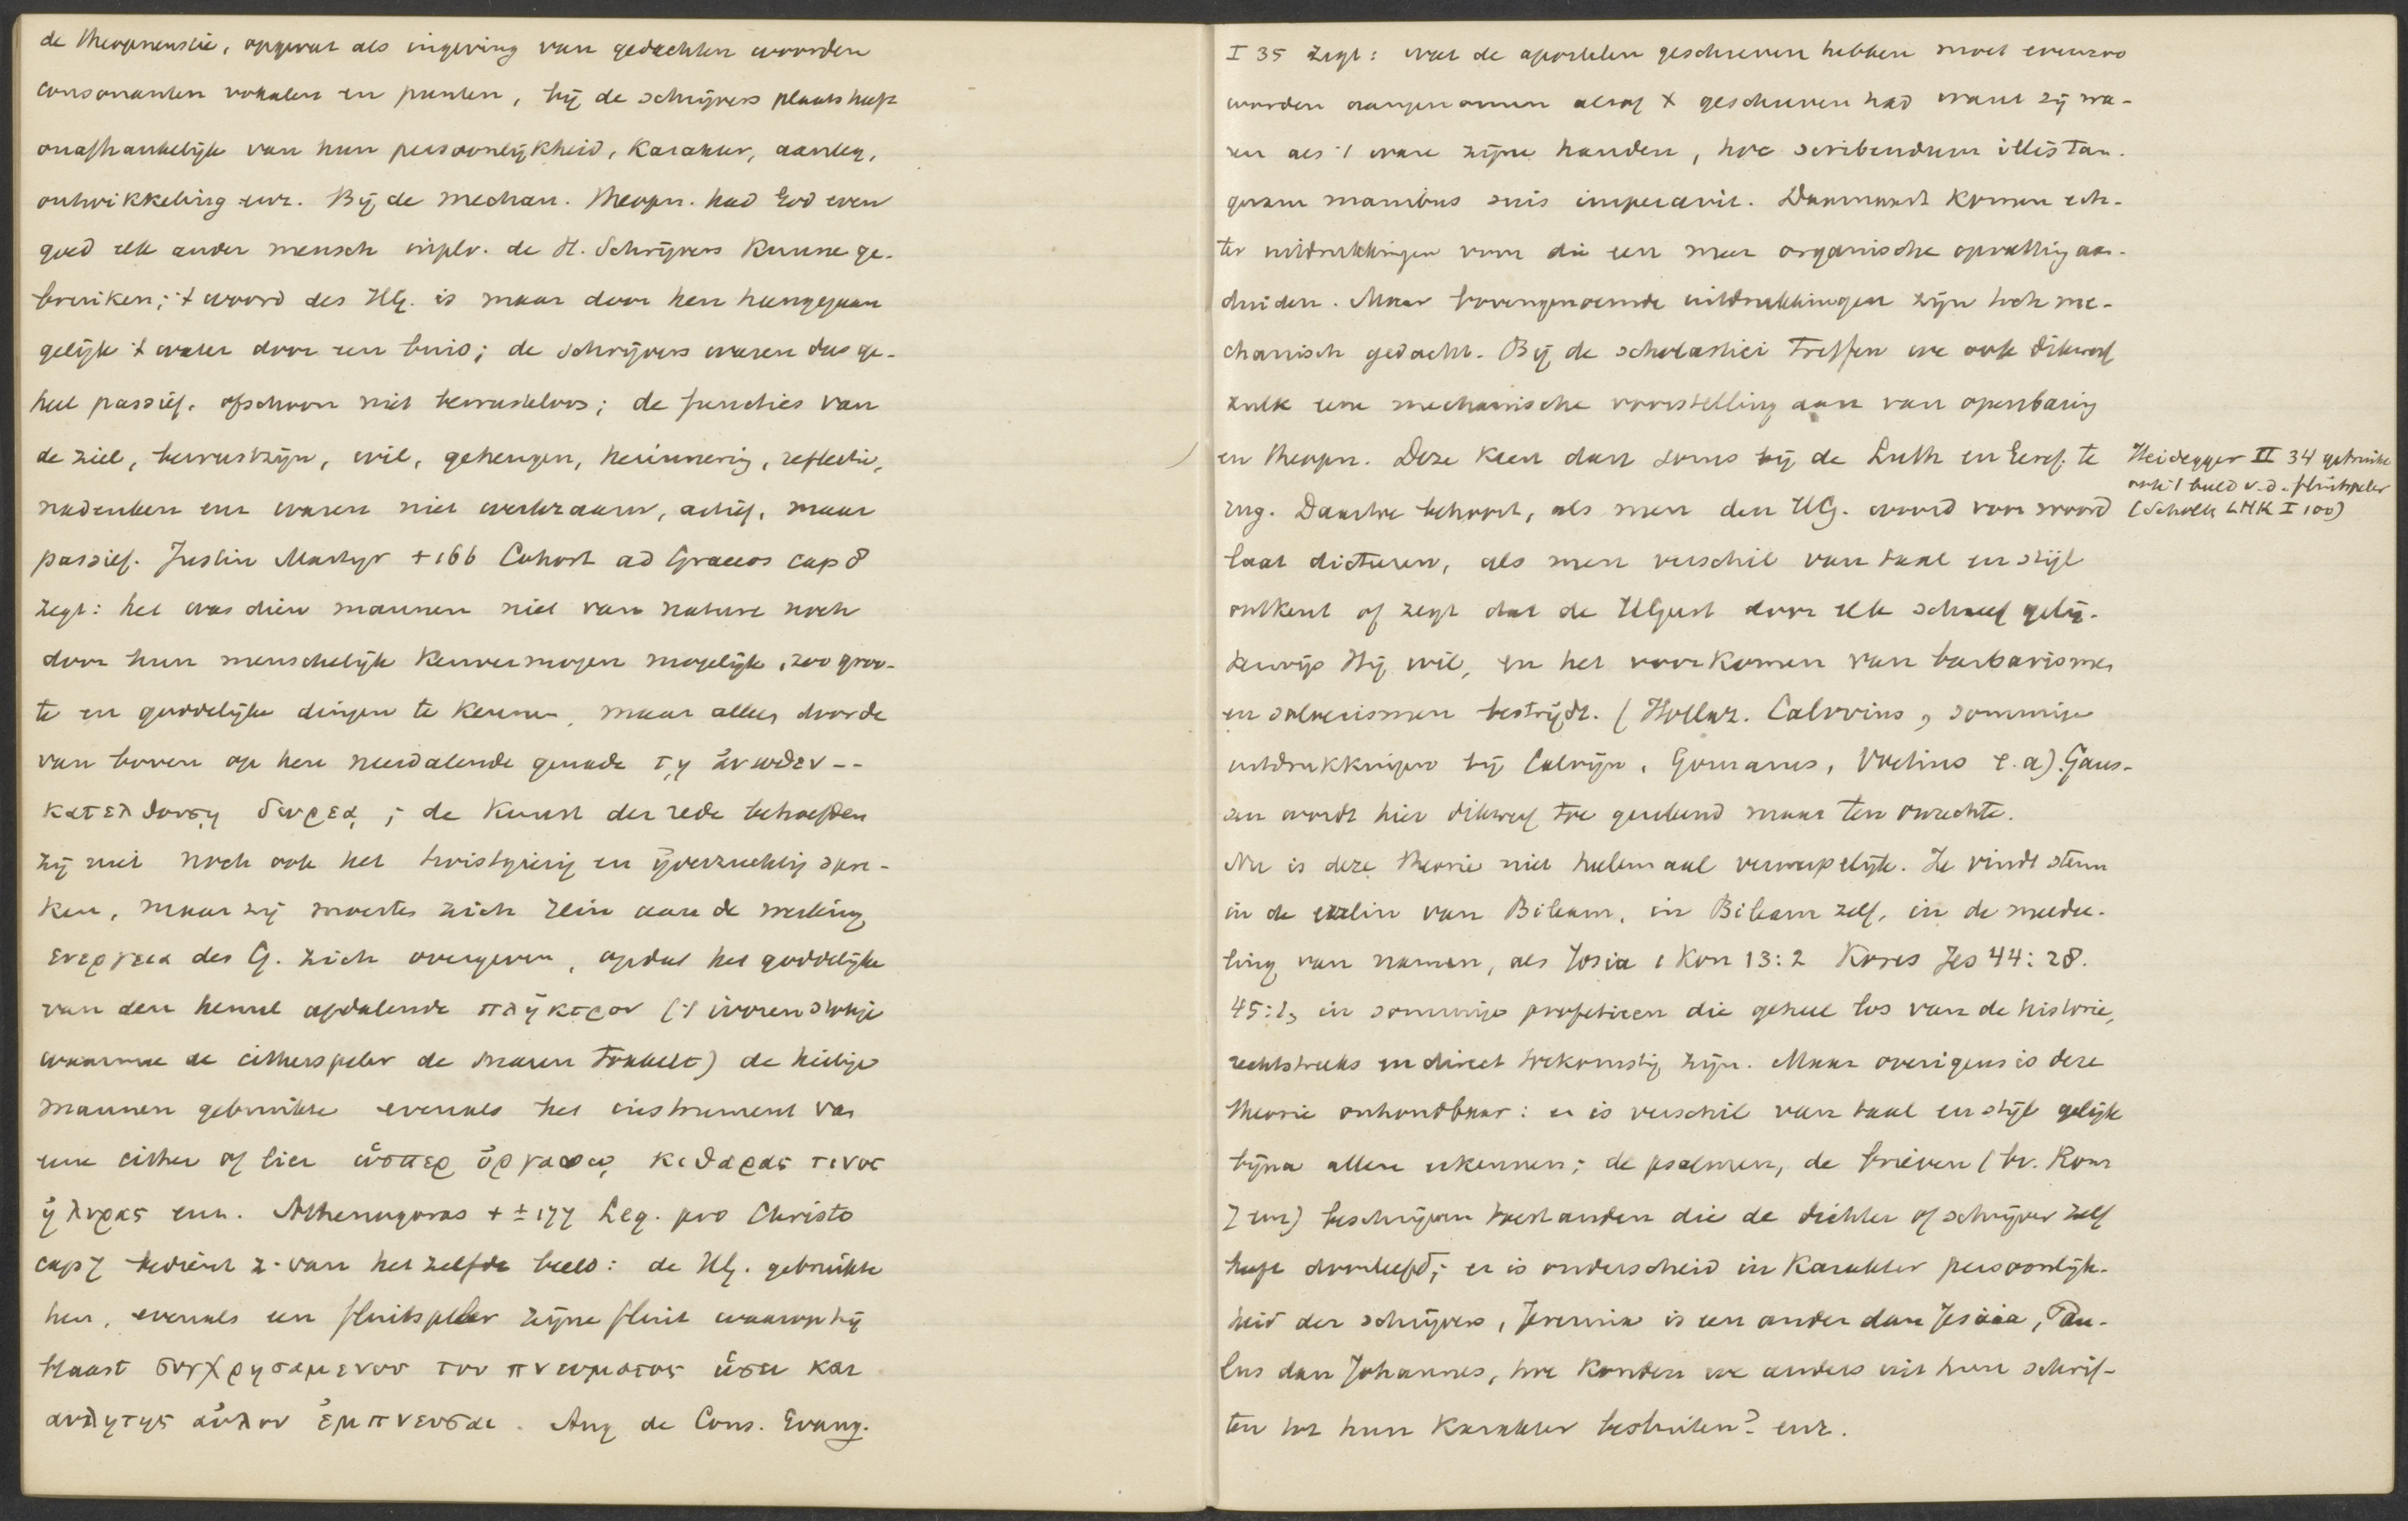 de theopneustie, opgevat als ingeving van gedachten woorden
consonanten vokalen en punten, bij de schrijvers plaats heeft
onafhankelijk van hun persoonlijkheid, karakter, aanleg,
ontwikkeling enz. Bij de mechan. theopn. had God even
goed elk ander mensch inplv. de H. Schrijvers kunne ge-
bruiken; 't woord des HG. is maar door hen heengegaan
gelijk 't water door een buis; de schrijvers waren dus ge-
heel passief, ofschoon niet bewusteloos; de functies van
de ziel, bewustzijn, wil, geheugen, herinnering, reflectie,
nadenken enz waren niet werkzaam, actief, maar
passief. Justin Martyr +166 Cohort ad Graecos cap 8
zegt: het was dien mannen niet van nature noch
door hun menschelijk kenvermogen mogelijk, zoo groo-
te en goddelijke dingen te kennen, maar alleen door de
van boven op hen neerdalende genade τῃ ἀνωθεν --
κατελθουσῃ δωρεᾳ ; de kunst der rede behoefden
zij niet noch ook het twistgierig en ijverzuchtig spre-
ken, maar zij moesten zich rein aan de werking
ενεργεια des G. zich overgeven, opdat het goddelijke
van den hemel afdalende πληκτρον ('t ivoren stokje
waarmee de citherspeler de snaren tokkelt) de heilige
mannen gebruikte evenals het instrument van
eene cither of lier ὡσπερ ὀργανῳ κιθαρας τινος
ἠ λυρας enz. Athenagoras + ± 177 Leg. pro Christo
cap 7 bedient z. van hetzelfde beeld: de HG. gebruikte
hen, evenals een fluitspeler zijne fluit waarop hij
blaast συγχρησαμενου του πνευματος ὡσει και
αυλητης αὐλον ἐμπνευσαι. Aug de Cons. Evang.
I 35 zegt: wat de apostelen geschreven hebben moet evenzoo
worden aangenomen alsof X geschreven had want zij wa-
ren als 't ware zijne handen, hoc scribendum illis tan-
quam manibus suis imperavit. Daarnaast komen ech-
ter uitdrukkingen voor die een meer organische opvatting aan-
duiden. Maar bovengenoemde uitdrukkingen zijn toch me-
chanisch gedacht. Bij de scholastici treffen we ook dikwerf
zulk eene mechanische voorstelling aan van openbaring
en theopn. Deze keert dan soms bij de Luth en Geref. te
rug. Daartoe behoort, als men den HG. woord voor woord
laat dicteeren, als men verschil van taal en stijl
ontkent of zegt dat de HGeest door elk schreef gelij-
kerwijs Hij wil, en het voorkomen van barbarismes
en soloecismen bestrijdt. (Hollaz. Calovius, sommige
uitdrukkingen bij Calvijn, Gomarus, Voetius e.a) Gaus-
sen wordt hier dikwerf toe gerekend maar ten onrechte.
Nu is deze theorie niet helemaal verwerpelijk. Ze vindt steun
in de ezelin van Bileam, in Bileam zelf, in de meedee-
ling van namen, als Josia 1 Kon 13:2 Kores Jes 44:28.
45:1, in sommige profetieen die geheel los van de historie,
rechtstreeks en direct toekomstig zijn. Maar overigens is deze
theorie onhoudbaar: er is verschil van taal en stijl gelijk
bijna allen erkennen; de psalmen, de brieven (bv. Rom
7 enz) beschrijven toestanden die de dichter of schrijver zelf
heeft doorleefd; er is onderscheid in karakter persoonlijk-
heid der schrijvers, Jeremia is een ander dan Jesaia, Pau-
lus dan Johannes, hoe konden we anders uit hun schrif-
ten tot hun karakter besluiten? enz.
Heidegger II 34 gebruikt
ook 't beeld v.d. fluitspeler
(Scholten LHK I 100)